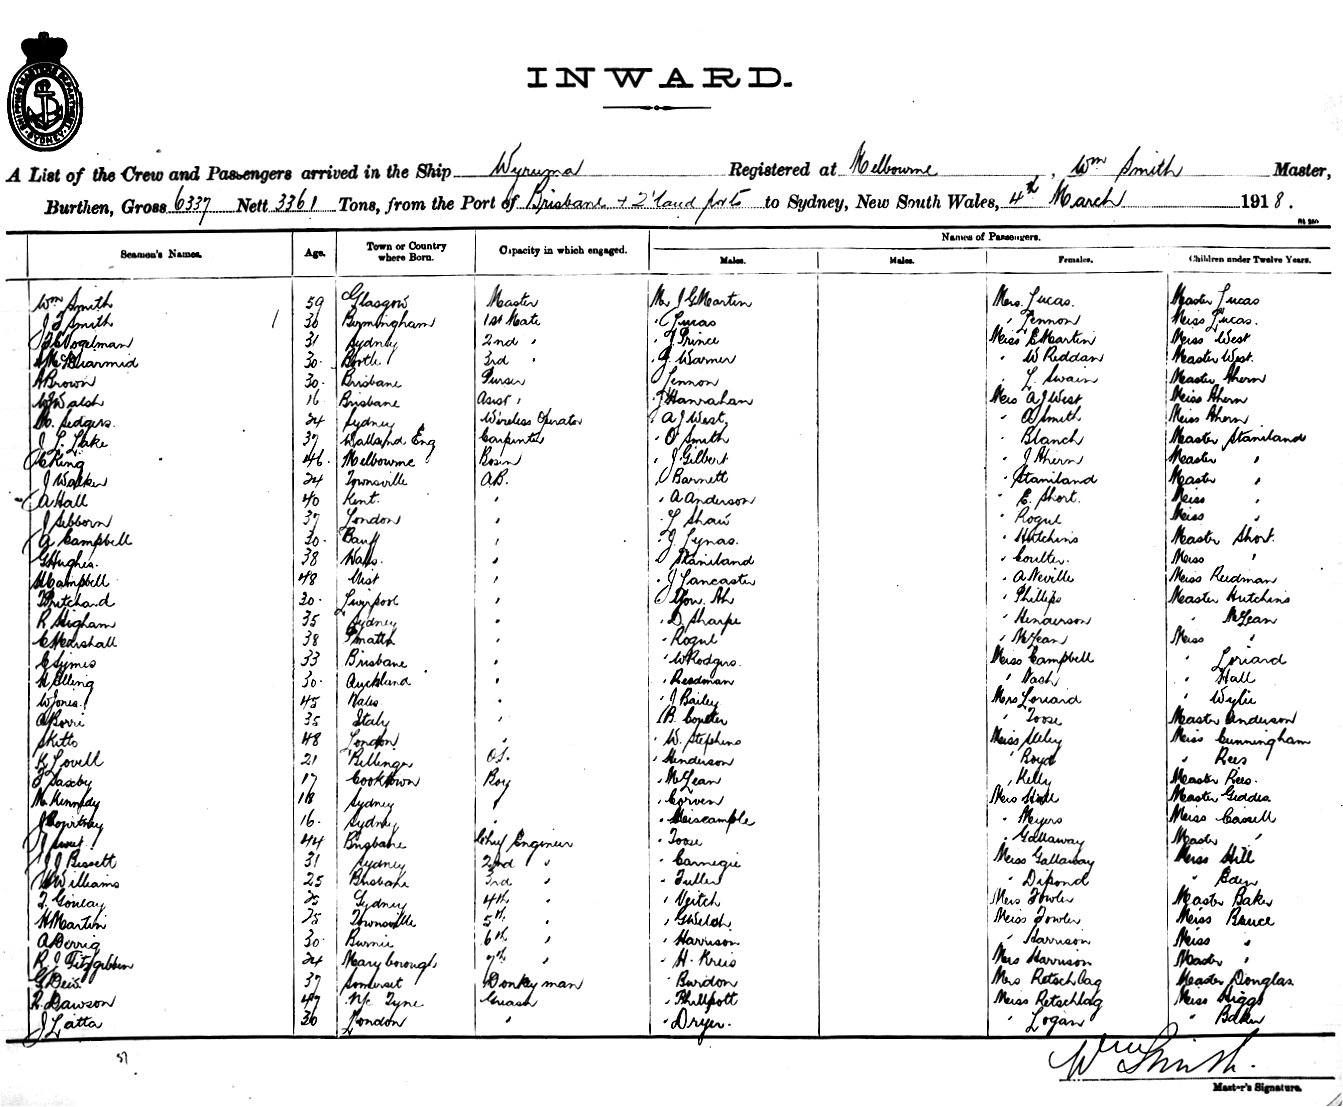 SHIPPING MASTER'S DEPARTMENT SYDNEY
INWARD.
A List of the Crew and Passengers arrived in the Ship Wyreema Registered at Melbourne, Wm Smith Master,
Burthen, Gross 6337 Nett 3361 Tons, from the Port of Brisbane + Q'land ports to Sydney, New South Wales, 4th March 1918.
Names of Passengers.
Seamen's Names. Age. Town or Country where Born. Capacity in which engaged. Males. Males. Females. Children under Twelve Years.
Wm Smith 59 Glasgow Master Mr J G Martin Mrs. Lucas. Master Lucas
Smith 36 Birmingham 1st Mate " Lucas " Lennon Miss Lucas.
Vogelman 31 Sydney 2nd " " Prince Miss E Martin Miss West
30 3rd " " Warner " W Reddan Master West.
A Brown 30 Brisbane Purser " Lennon " L. Swain Master Ahern
Walsh 16 Brisbane Asst " " J Hanrahan Mrs A J West Miss Ahern
Sedgers. 24 Sydney Wireless Operator " A J West " Smith Miss Ahern
J. L. Lake 37 Wallsend Eng Carpenter " O Smith " Blanch Master Staniland
King 46 Melbourne Bosun " J Gilbert " J Ahern Master "
J Walker 24 Townsville A.B. " Barnett " Staniland Master "
A Hall 40 Kent. " " A Anderson " E. Short. Miss "
J 37 London " " L Shaw " Rogul Miss "
A Campbell 30 Banff " " J. Lynas. " Hutchins Master Short.
G Hughes. 38 Wales. " " Staniland " Coulter. Miss "
Campbell 48 " " J Lancaster " A Neville Miss Redman
Pritchard 30 Liverpool " " " Phillips Master Hutchins
R Higham 35 Sydney " " D Sharpe " Henderson " McLean
C Marshall 38 P'matta " " Rogul " McLean Miss "
C Symes 33 Brisbane " " W Rodgers. Miss Campbell " Loriard
30 Auckland " " Readman " Nash " Hall
W Jones. 45 Wales " " J Bailey Mrs Loriard " Wylie
A Borri 35 Italy " " B. Coulter " Toose Master Anderson
Skitto 48 London " " W. Stephens Miss Miss Cunningham
K Lovell 21 Bellinger O.S. " Henderson " Boyd " Rees
Saxby 17 Cooktown Boy " McLean " Kelly Master Rees.
M Kennedy 18 Sydney " " Corven Mrs Master Geddes
J Courtney 16 Sydney " " Meiscample " Meyers Miss Cassell
J Sweet 44 Brisbane Chief Engineer " Toose " Gallaway Master "
J J Bissett 31 Sydney 2nd " " Carnegie Miss Gallaway Miss Hill
Williams 25 Brisbane 3rd " " Fuller " Dipond " Eden
T. Gourlay 25 Sydney 4th " " Veitch Mrs Fowler Master Baker
H Martin 25 Townsville 5th " " G Welsh Miss Fowler Miss Bruce
A Derrig 30 Burnie 6th " " Harrison " Harrison Miss "
R J Fitzgibbon 24 Maryborough 7th " " H. Kreis Mrs Harrison Master "
37 Somerset Donkeyman " Buridon Mrs Retschlag Master Douglas
Dawson 47 N/c Tyne Greaser " Phillpott Miss Retschlag Miss Higgs
J Latta 36 London " " Dryer. " Logan " Baker
Wm Smith.
Master's Signature.